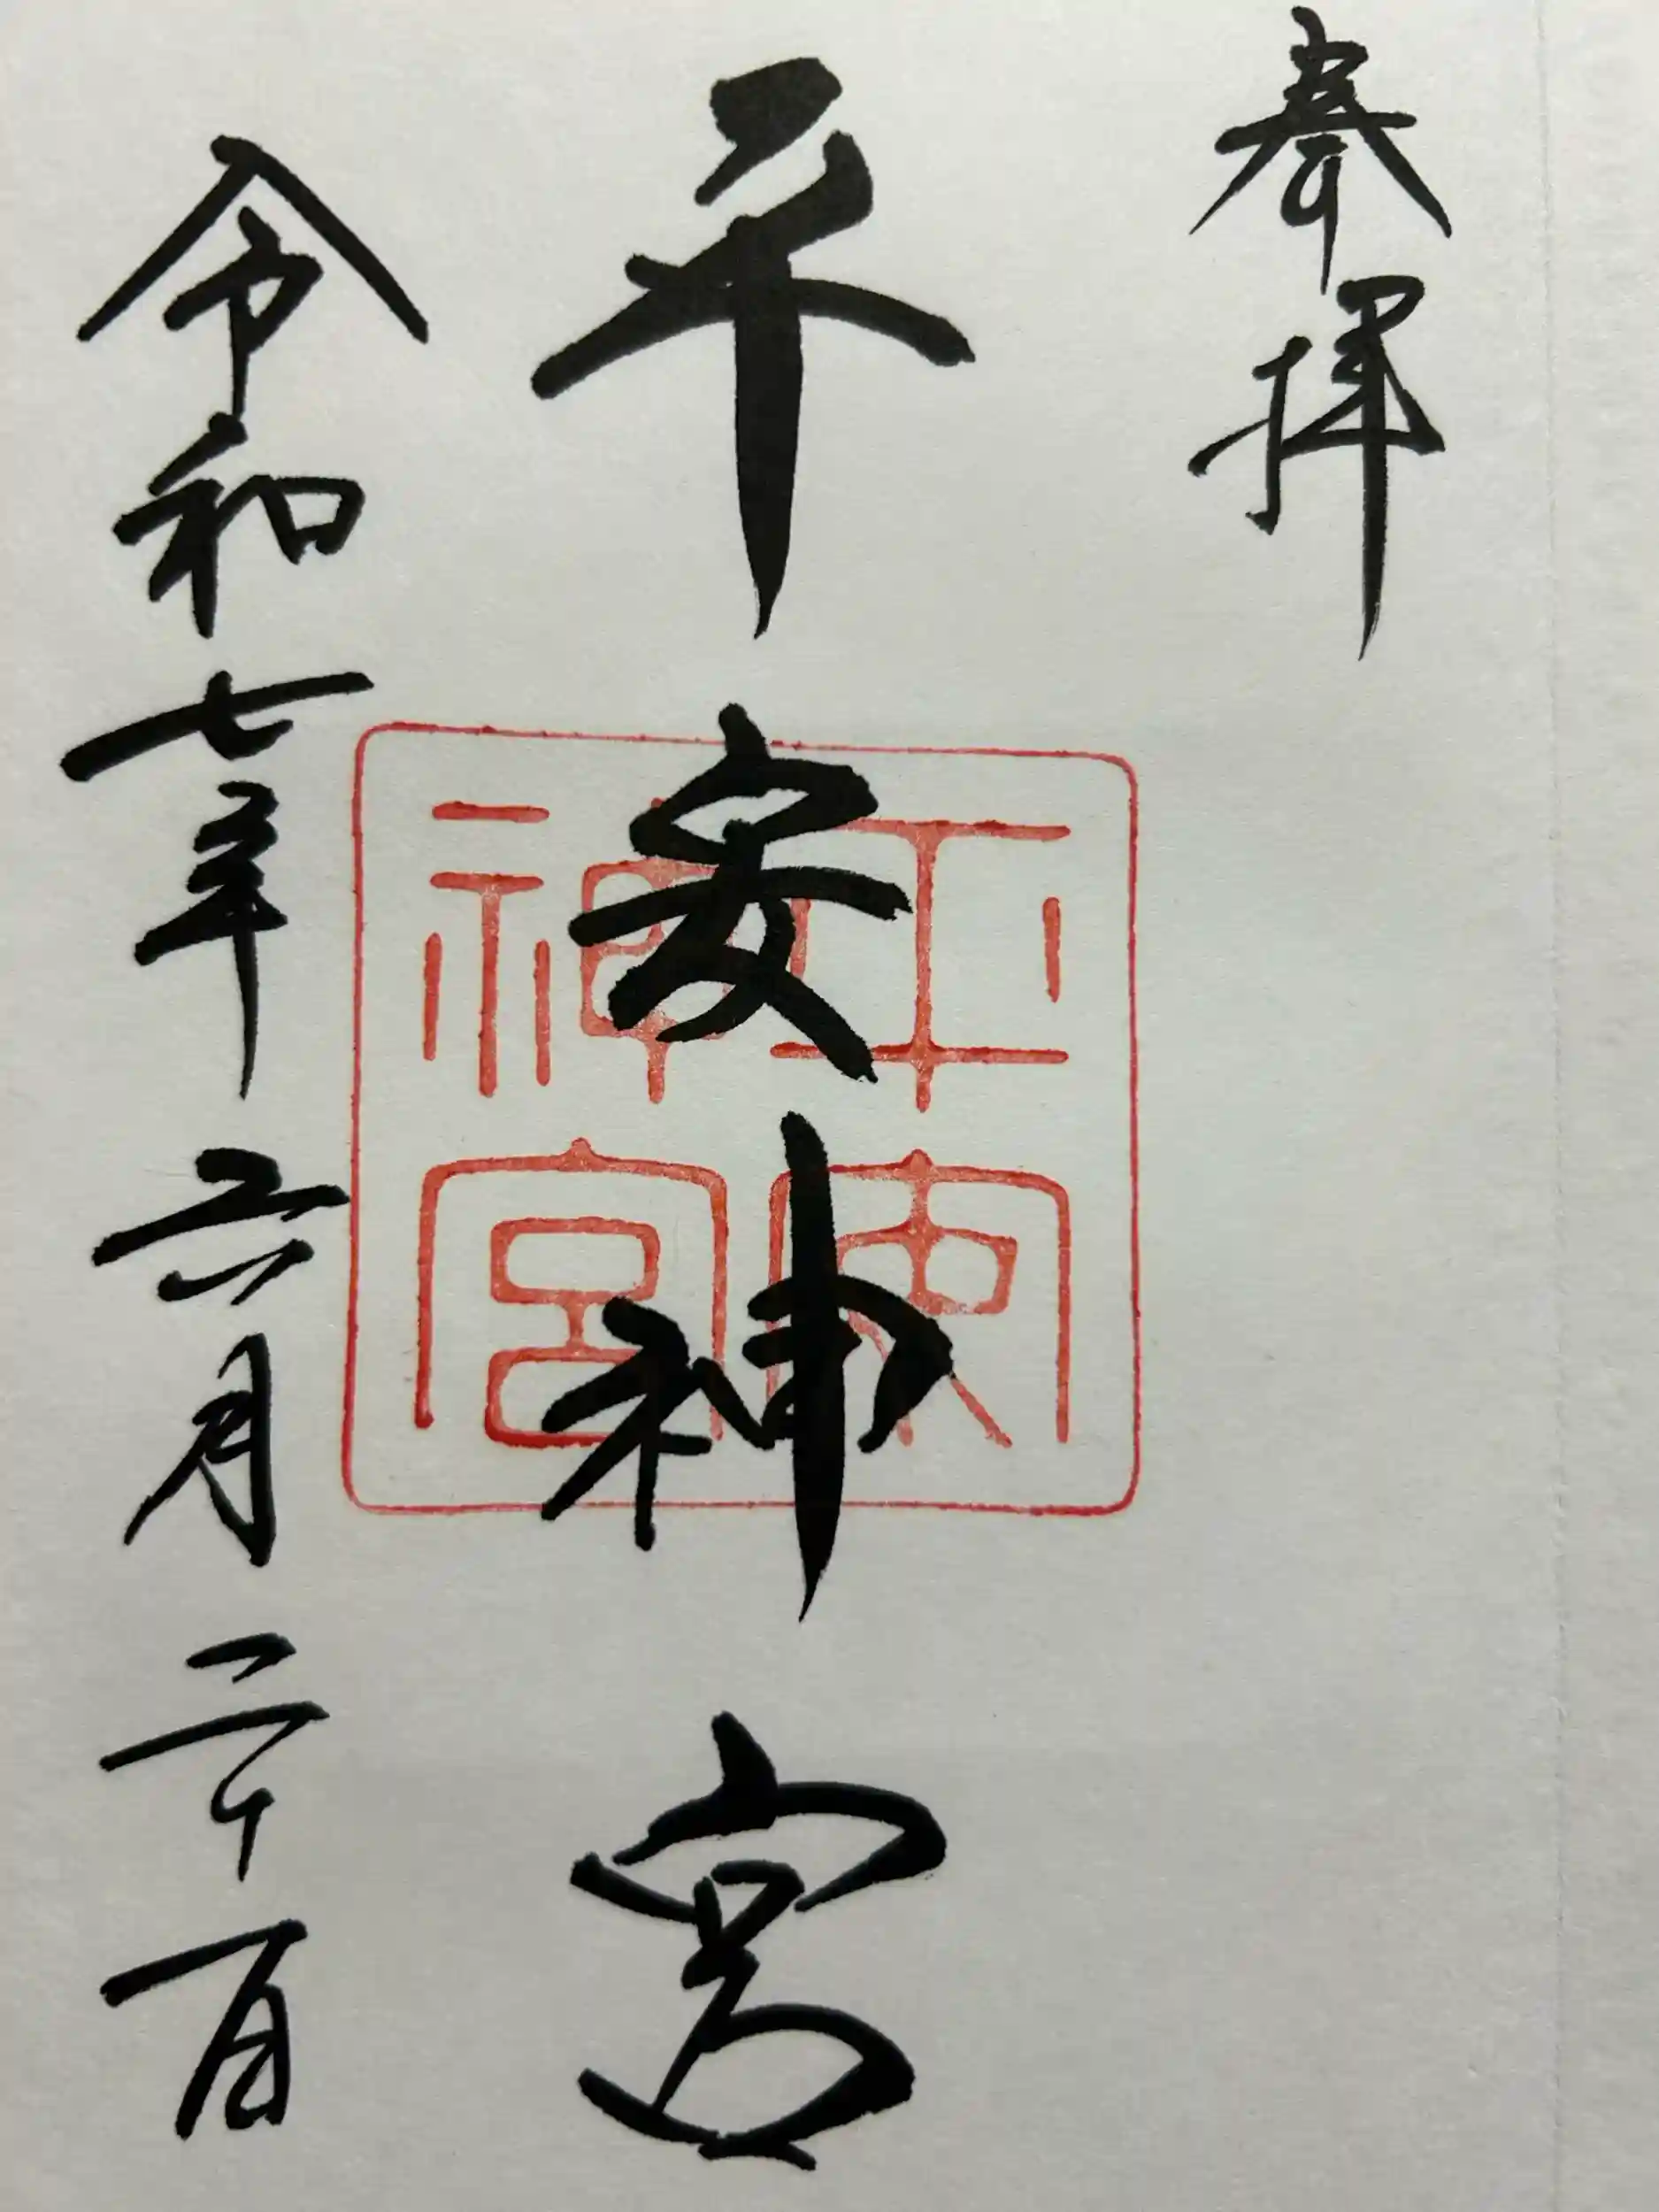 奉拝
平安神宮
平安神宮
令和七年六月二十一日